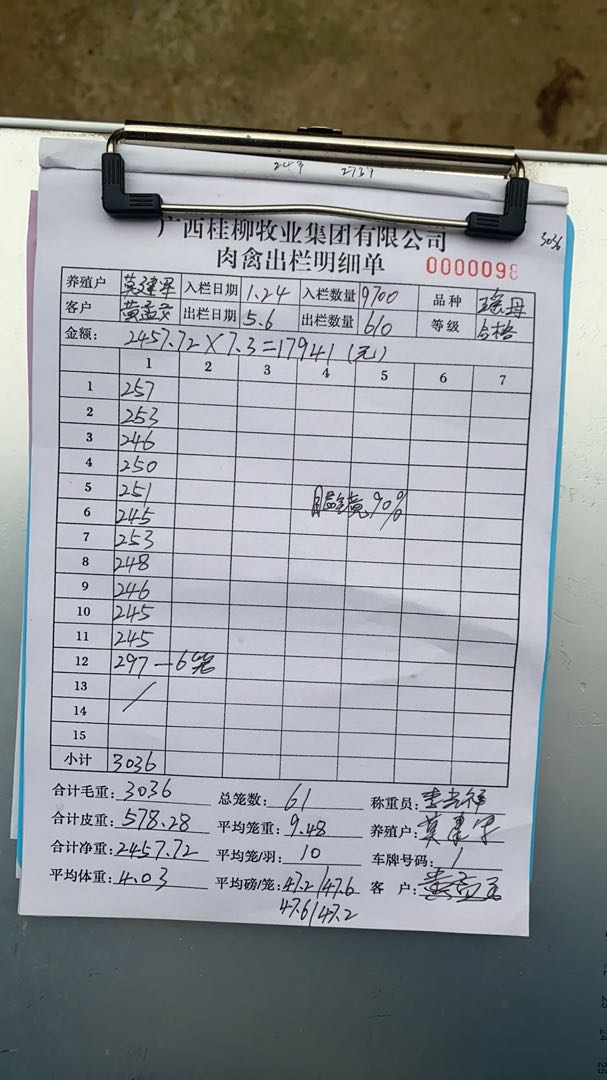 3036
广西桂柳牧业集团有限公司
肉禽出栏明细单 0000098
养殖户 莫建军 入栏日期 1.24 入栏数量 9700 品种 瑶母
客户 黄孟交 出栏日期 5.6 出栏数量 610 等级 合格
金额: 2457.72×7.3=17941(元)
1 2 3 4 5 6 7
1 257
2 253
3 246
4 250
5 251
6 245
90%
7 253
8 248
9 246
10 245
11 245
12 297—6笼
13
14
15
小计 3036
合计毛重: 3036 总笼数: 61 称重员:
合计皮重: 578.28 平均笼重: 9.48 养殖户: 莫建军
合计净重: 2457.72 平均笼/羽: 10 车牌号码: 1
平均体重: 4.03 平均磅/笼: 47.2/47.6 客户:
47.6/47.2